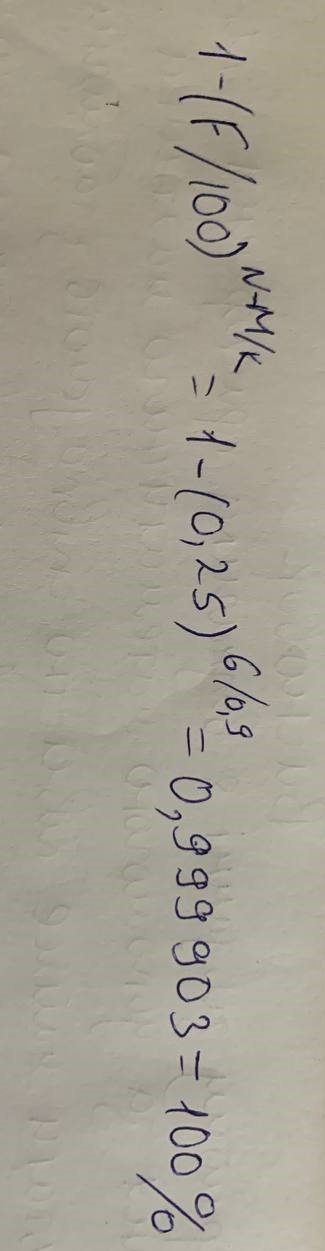 1-(F/100)^N-M/K = 1-(0,25)^6/0,9 = 0,999903 = 100%